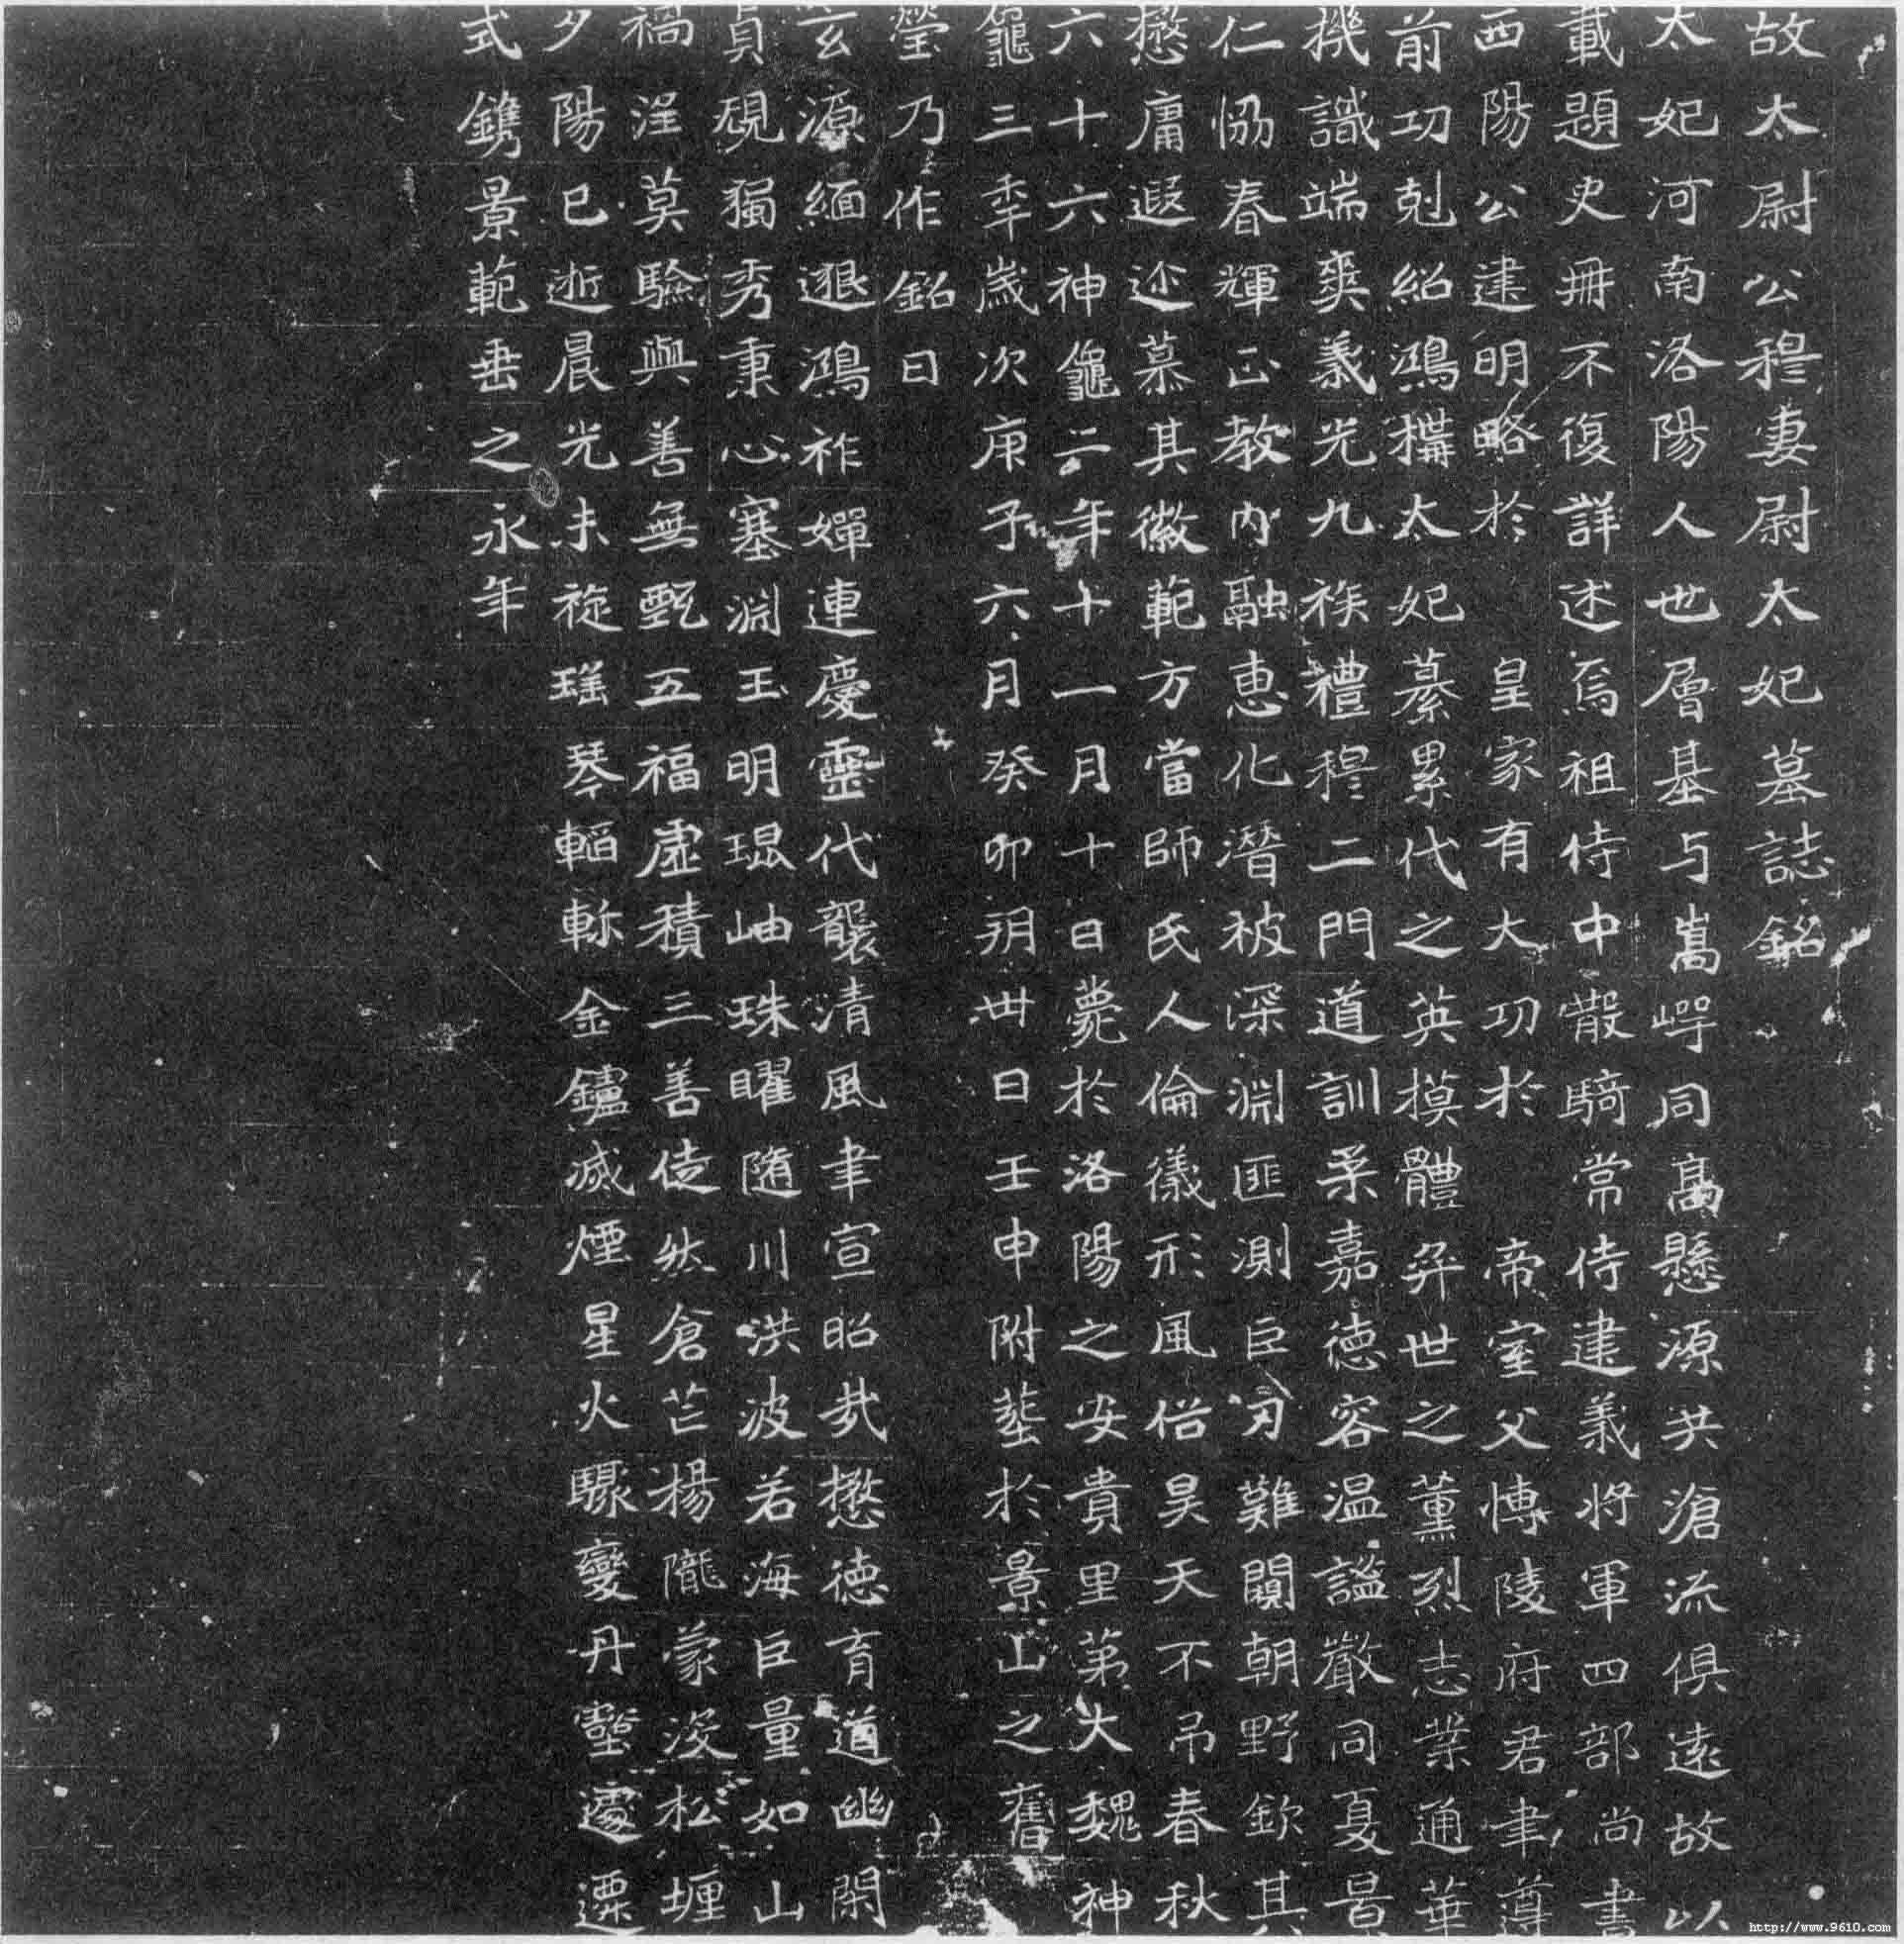 故太尉公穆妻尉太妃墓誌銘
太妃河南洛陽人也層基与嵩㟧同高懸源共滄流俱遠故以
載題史冊不復詳述焉祖侍中散騎常侍建義將軍四部尚書
西陽公建明略於　皇家有大功於　帝室父博陵府君聿遵
前功剋紹鴻構太妃綦累代之英摸體弈世之薰烈志業通華
機識端爽義光九族禮穆二門道訓柔嘉德容温謐嚴同夏日
仁恊春輝正教內融恵化潛被深淵匪測巨力難闚朝野欽其
懋庸遐迩慕其徽範方當師氏人倫儀形風俗昊天不吊春秋
六十六神龜二年十一月十日薨於洛陽之安貴里第大魏神
龜三秊歲次庚子六月癸卯玥卅日壬申附塟於景山之舊
塋乃作銘曰
玄源緬邈鴻祚嬋連慶靈代襲清風聿宣昭哉懋德育道幽閑
貞硯獨秀秉心塞淵玉明琨岫珠曜隨川洪波若海巨量如山
禍淫莫驗與善無甄五福虛積三善徒然倉芒楊隴蒙濛松堙
夕陽已逝晨光未旋瑤琴輟軫金鑪滅煙星火驟變丹壑遽遷
式鐫景範垂之永年
http://www.9610.com